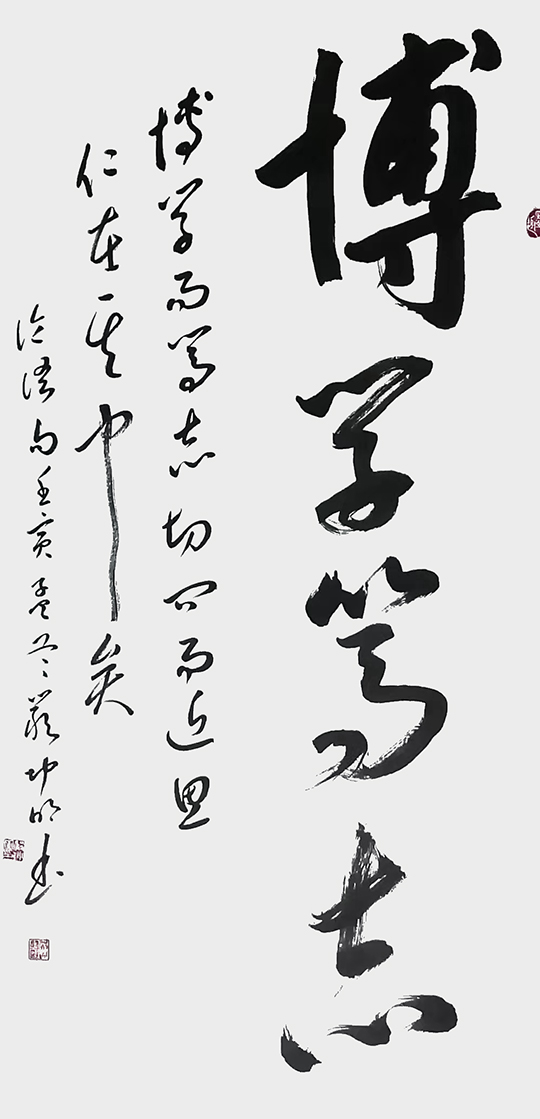 博学笃志
博学而笃志切问而近思
仁在其中矣
论语句壬寅孟冬严坤明书